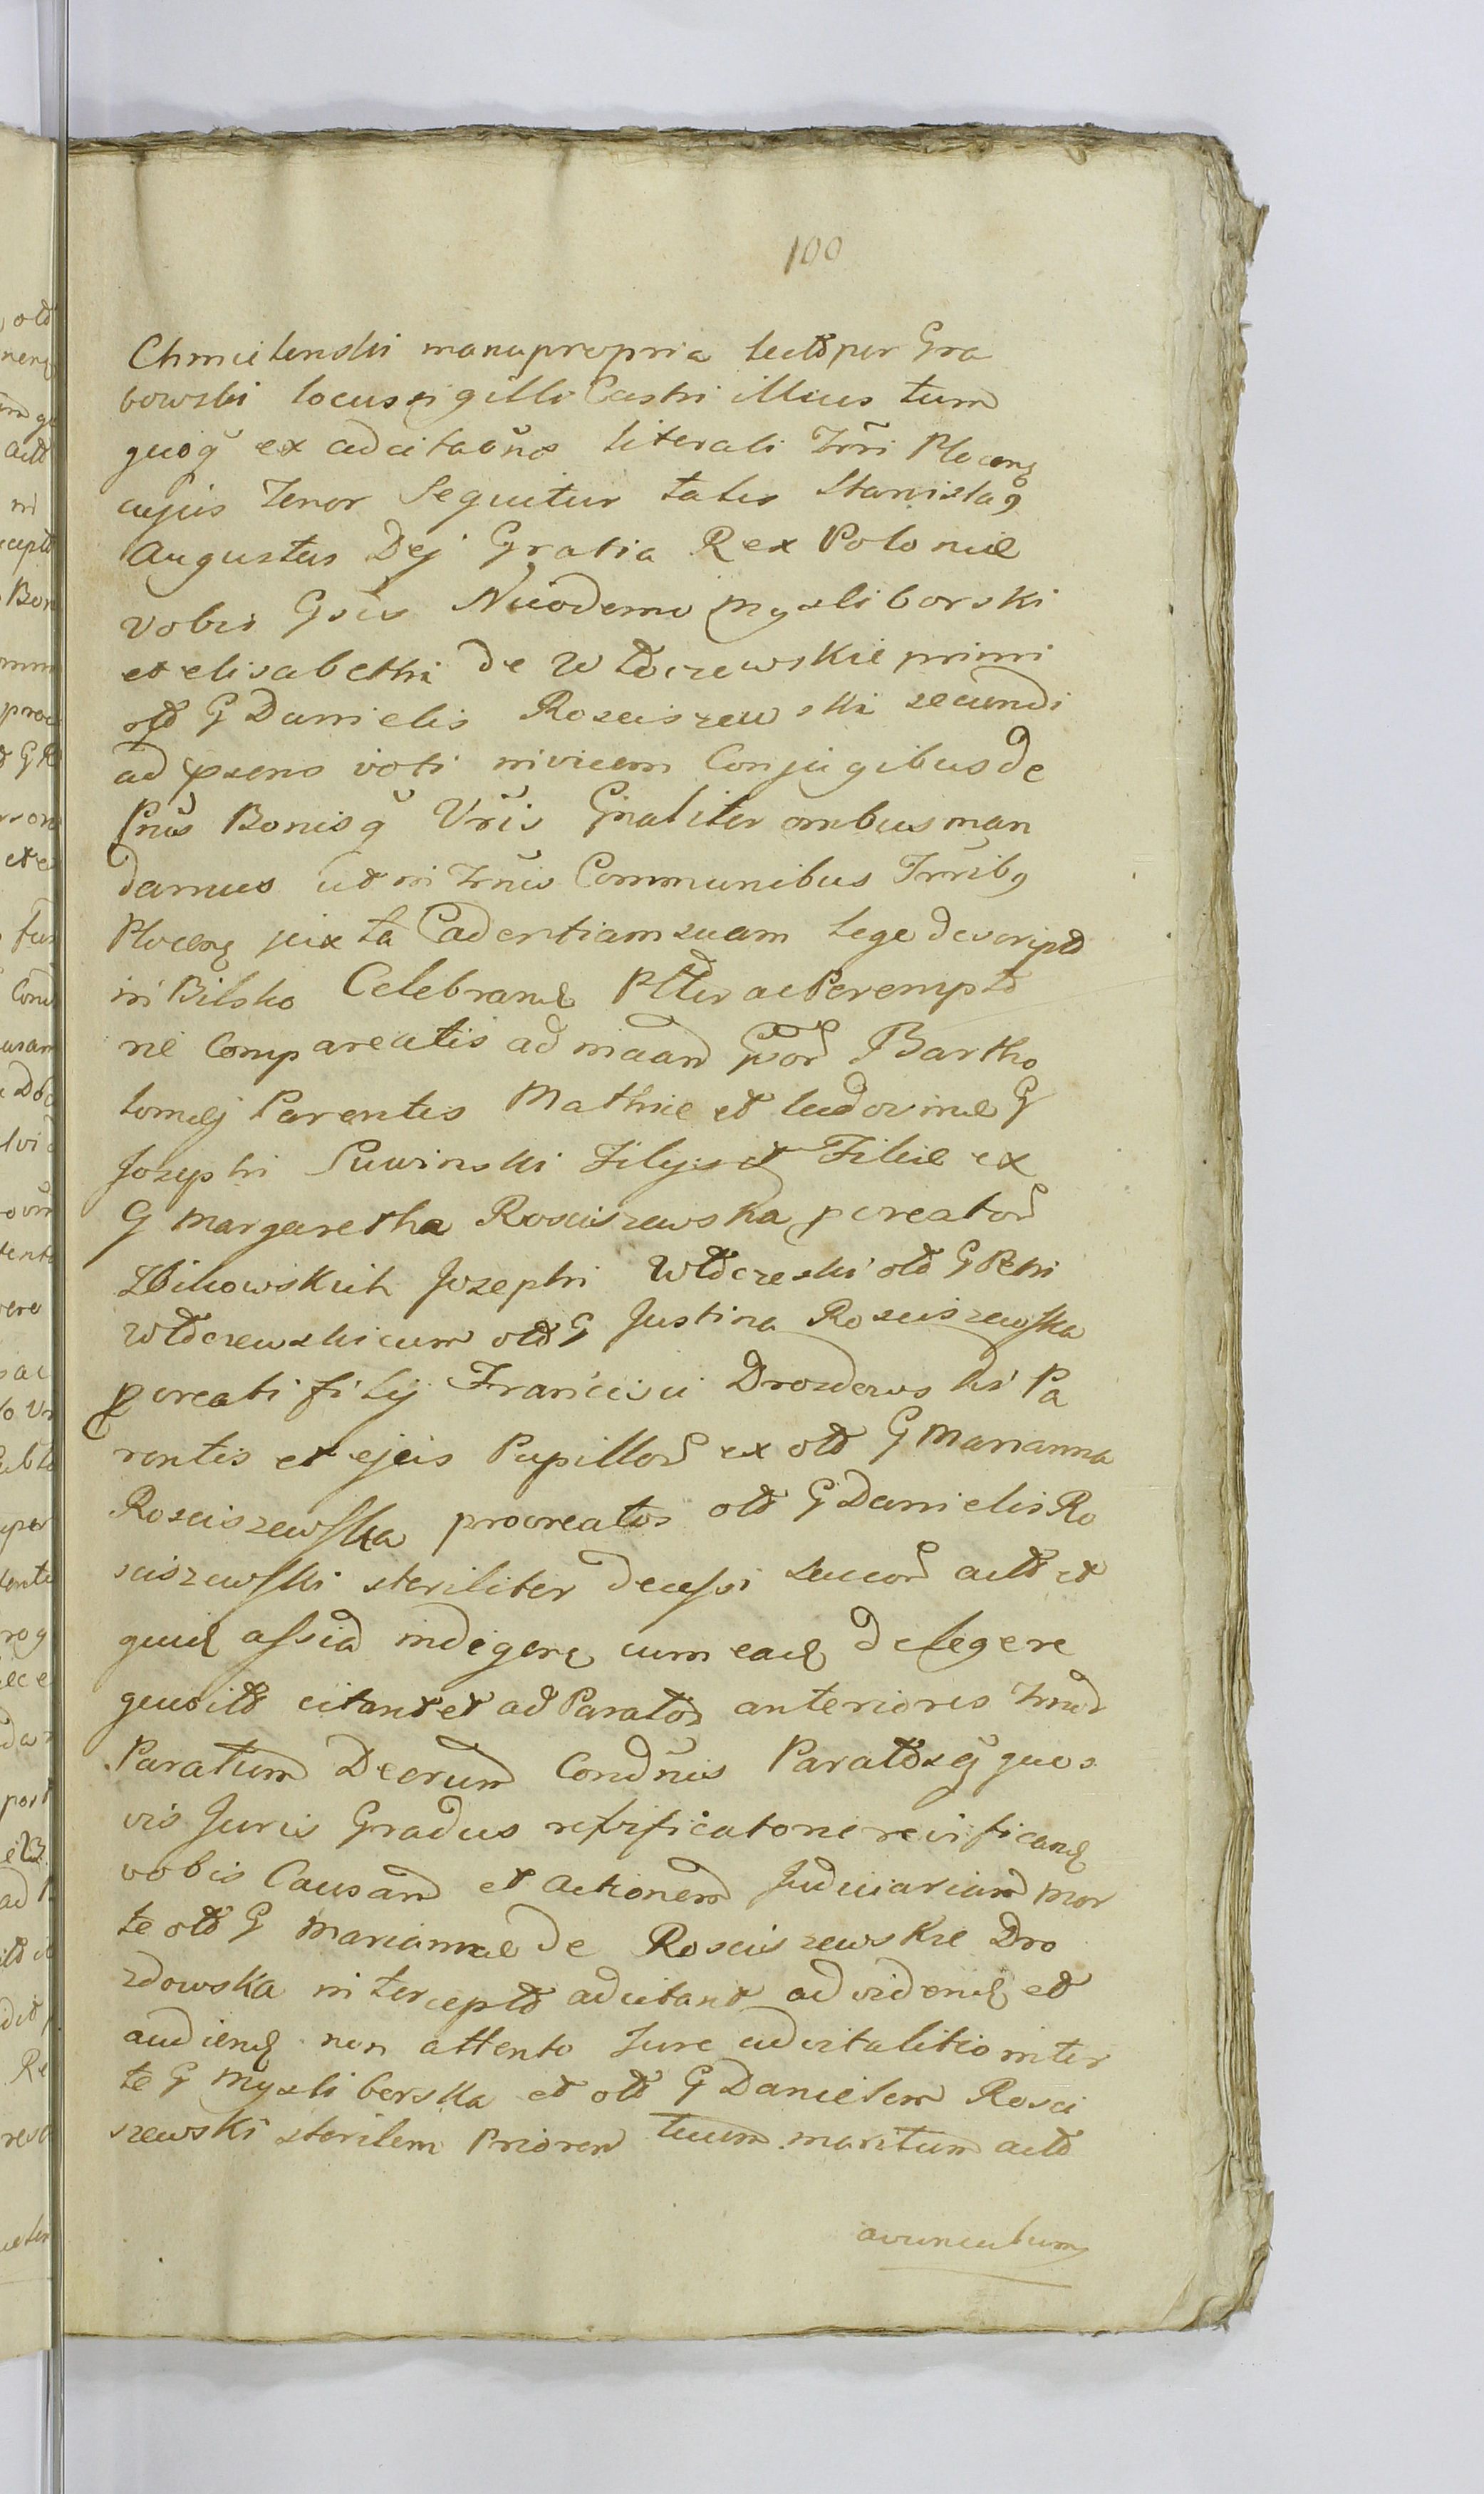 100
Chmielenski manupropria lectt per Gra
bowski locus sigilli Castri illius tum
quoq̃ ex adcitaõne literali Trr̃i Plocenq
cujus Tenor Sequitur talis Stanisla9
Augustus Dej Gratia Rex Poloniæ
Vobis Gsis Nicodemo Mysliborski
et elisabethi de Włoczewskie primi
olt G Danielis Rosciszewski secundi
ad psens voti invicem Conjugibus de
Pñis Bonisq̃ Vr̃is Gñaliter omibus man
damus ut in Trñis Communibus Trr̃ib9
Plocenq juxta Cadentiam suam lege descript
in Bilsko Celebrand Pltter ac Perempto
rie Compareatis ad instan Gsor Bartho
lomæj Parentis Mathiæ et Ludovicæ G
Josephi Suwinski Filij et Filiæ ex
G Margaretha Rosciszewska pcreator
Zbikowskich Josephi Włoczeski olt G Petri
Włoczewski cum olt G Justina Rosciszewska
pcreati filij Francisci Drozdowski Pa
rentis et ejus Pupillor ex olt G Marianna
Rosciszewska procreatos olt G Danielis Ro
sciszewski steriliter decessi succor actt et
quid assid indigenq cum eadq delegere
quositt citant et ad Paratos anteriores Trnd
Paratum Decrum Condñis Paratosq̃ quos
vis Juris Gradus reivificatone reivificand
vobis Causam et Actionem Judiciariam mor
te olt G Mariannæ de Rosciszewskie Dro
zdowska interceptt adcitant ad videnq et
audienq non attento Jure advitalitio inter
te G Mysliberska et olt G Danielem Rosci
szewski sterilem Priorem tuum maritum actt
avunculum